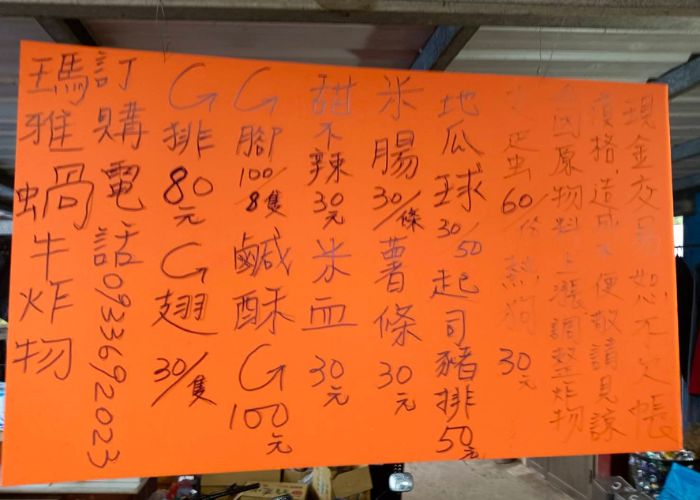 瑪雅蝸牛炸物
訂購電話0933692023
G排80元 G翅30/隻
G腳100/8隻 鹹酥G100元
甜不辣30元 米血30元
米腸30/條 薯條30元
地瓜球30/50 起司豬排50元
60/份 熱狗30元
因原物料上漲調整炸物
價格,造成不便敬請見諒
現金交易恕不欠帳